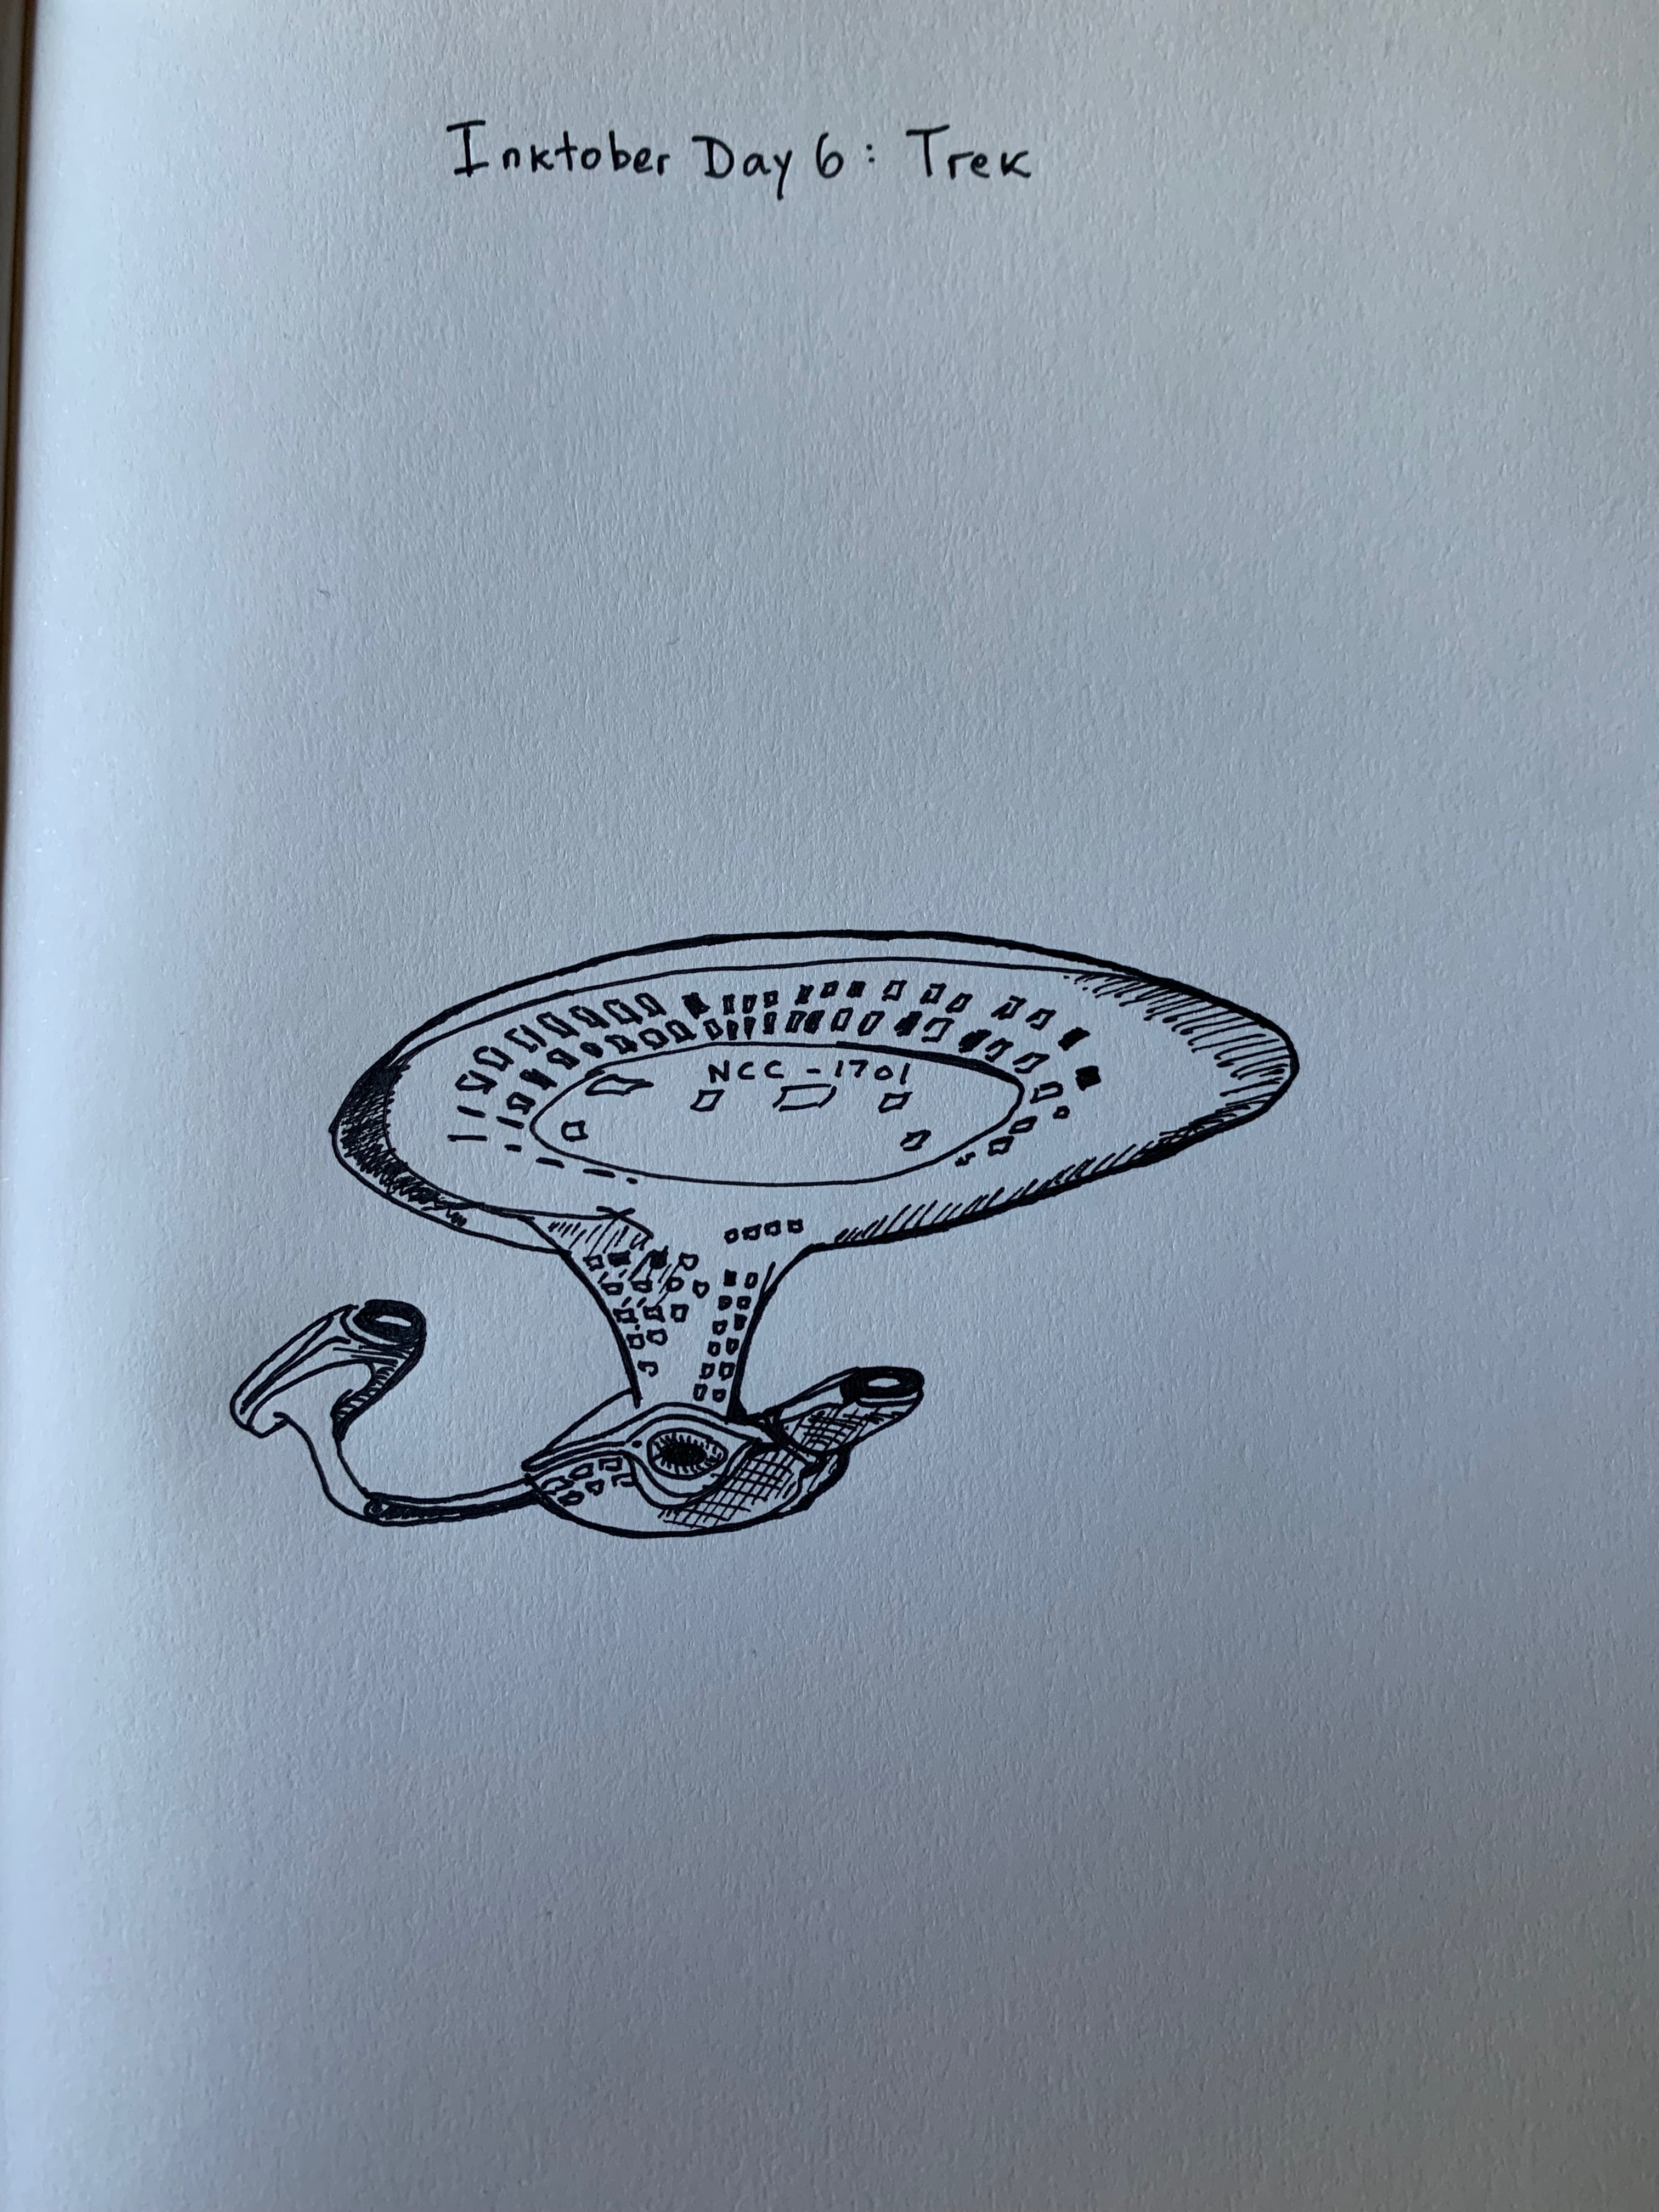 Inktober Day 6: Trek
NCC-1701